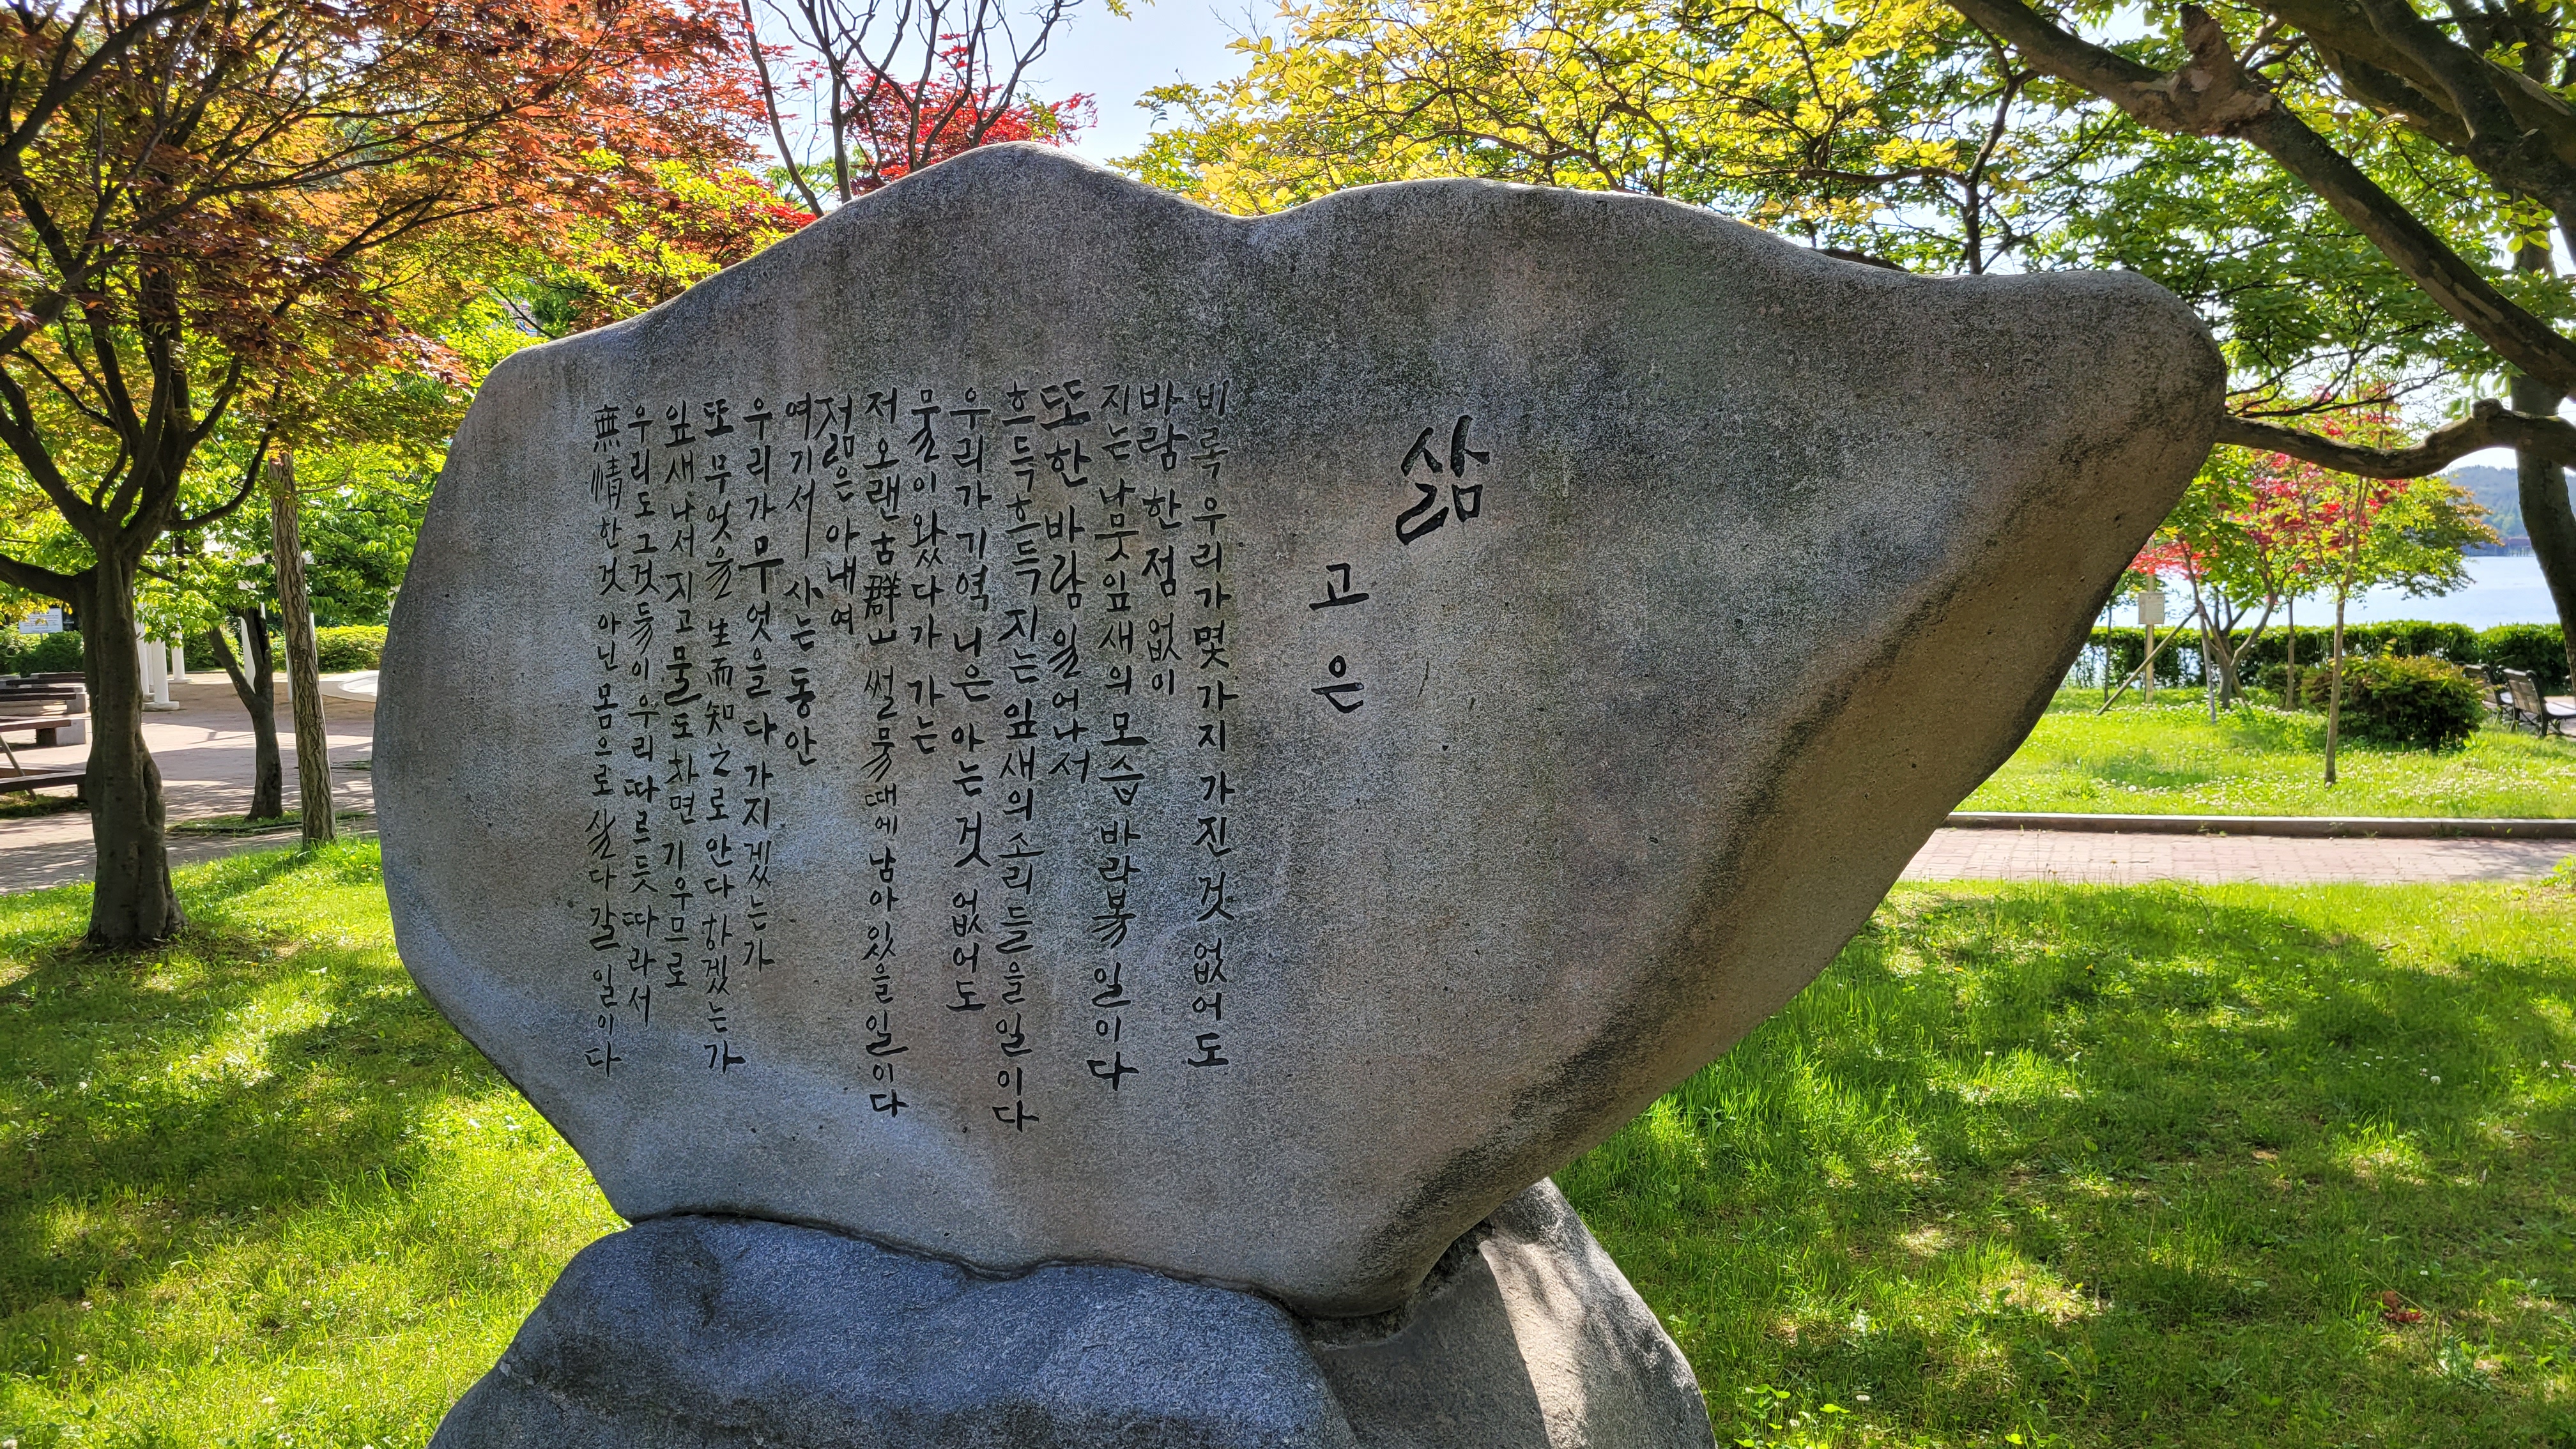 삶
고은
비록 우리가 몇가지 가진것 없어도
바람 한점 없이
지는 나뭇잎새의 모습 바라볼 일이다
또한 바람 일어나서
흐득흐득 지는 잎새의 소리들을 일이다
우리가 기역니은 아는것 없어도
물이 왔다가 가는
저 오랜 古群山 썰물때에 남아있을 일이다
젊은 아내여
여기서 사는동안
우리가 무엇을 다 가지겠는가
또 무엇을 生而知之로 안다 하겠는가
잎새 나서 지고 물도 차면 기우므로
우리도 그것들이 우리 따르듯 따라서
無情한것 아닌 몸으로 살다 갈 일이다